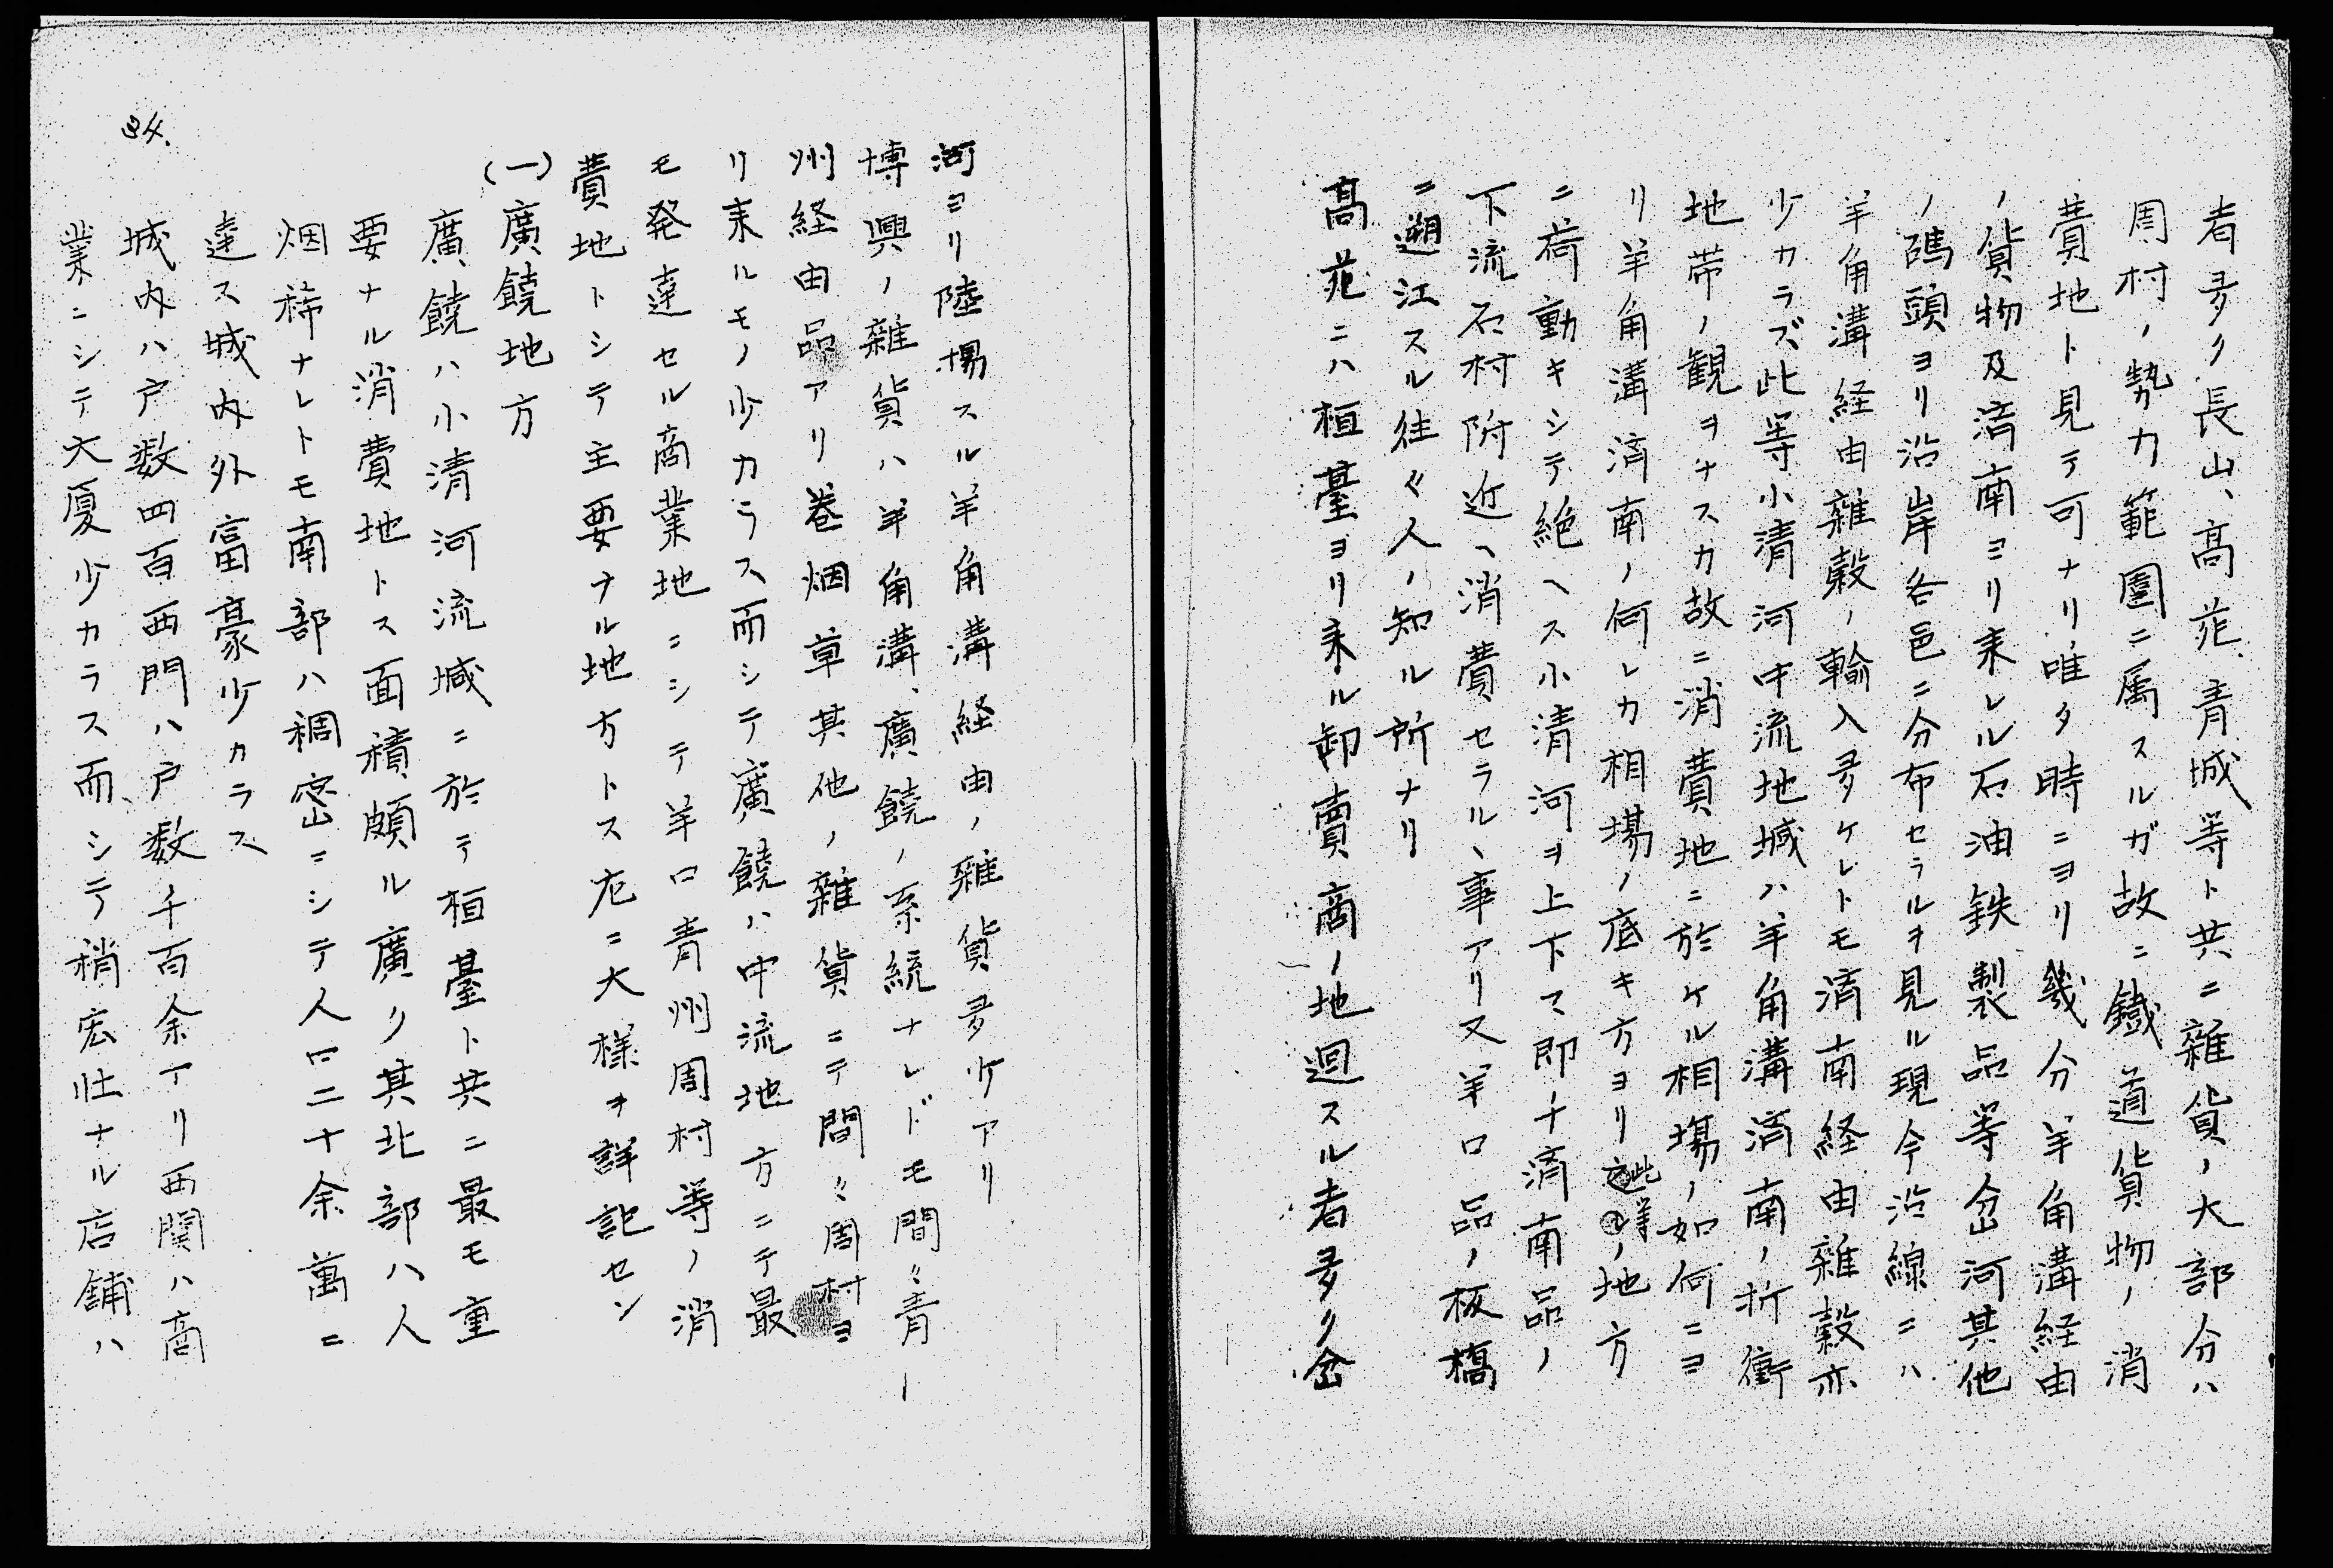 者多ク長山、高苑、青城等ト共ニ雜貨ノ大部分ハ
周村ノ勢力範圍ニ属スルガ故ニ鐵道貨物ノ消
費地ト見テ可ナリ唯タ時ニヨリ幾分羊角溝経由
ノ貨物及済南ヨリ来レル石油鉄製品等岔河其他
ノ碼頭ヨリ沿岸各邑ニ分布セラルヲ見ル現今沿線ニハ
羊角溝経由雜穀ノ輸入多ケレトモ済南経由雜穀亦
少カラズ此等小清河中流地域ハ羊角溝済南ノ折衝
地帯ノ観ヲナスカ故ニ消費地ニ於ケル相場ノ如何ニヨ
リ羊角溝済南ノ何レカ相場ノ底キ方ヨリ此等ノ地方
ニ荷動キシテ絶ヘス小清河ヲ上下マ即チ済南品ノ
下流石村附近ヘ消費セラルヽ事アリ又羊口品ノ板橋
ニ遡江スル往々人ノ知ル所ナリ
高苑ニハ桓臺ヨリ来ル卸賣商ノ地廻スル者多ク岔
河ヨリ陸揚スル羊角溝経由ノ雜貨多少アリ
博興ノ雜貨ハ羊角溝、廣饒ノ系統ナレドモ間々青
州経由品アリ巻烟草其他ノ雜貨ニテ間々周村ヨ
リ来ルモノ少カラス而シテ廣饒ハ中流地方ニテ最
モ発達セル商業地ニシテ羊口青州周村等ノ消
費地トシテ主要ナル地方トス左ニ大様ヲ詳記セン
(一)廣饒地方
廣饒ハ小清河流域ニ於テ桓臺ト共ニ最モ重
要ナル消費地トス面積頗ル廣ク其北部ハ人
烟稀ナレトモ南部ハ稠密ニシテ人口二十余萬ニ
達ス城内外富豪少カラス
城内ハ戸数四百西門ハ戸数千百余アリ西関ハ商
業ニシテ大厦少カラス而シテ稍宏壮ナル店舗ハ
34.